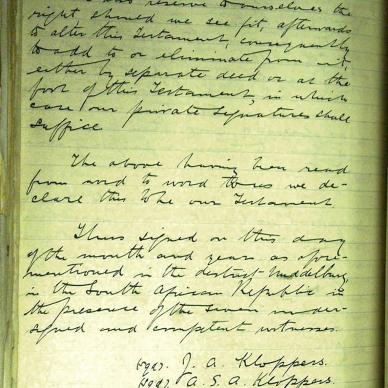 also reserve to ourselves the
right should we see fit, afterwards
to alter this Testament, consequently
to add to or eliminate from it,
either by separate deed or at the
foot of this Testament, in which
case our private signatures shall
suffice
The above having been read
from word to word to us we de-
clare this to be our Testament.
Thus signed on this day
of the month and year as afore-
mentioned in the district Middelburg
in the South African Republic in
the presence of the seven under-
signed and competent witnesses.
J. A. Kloppers.
A. S. A. Kloppers.